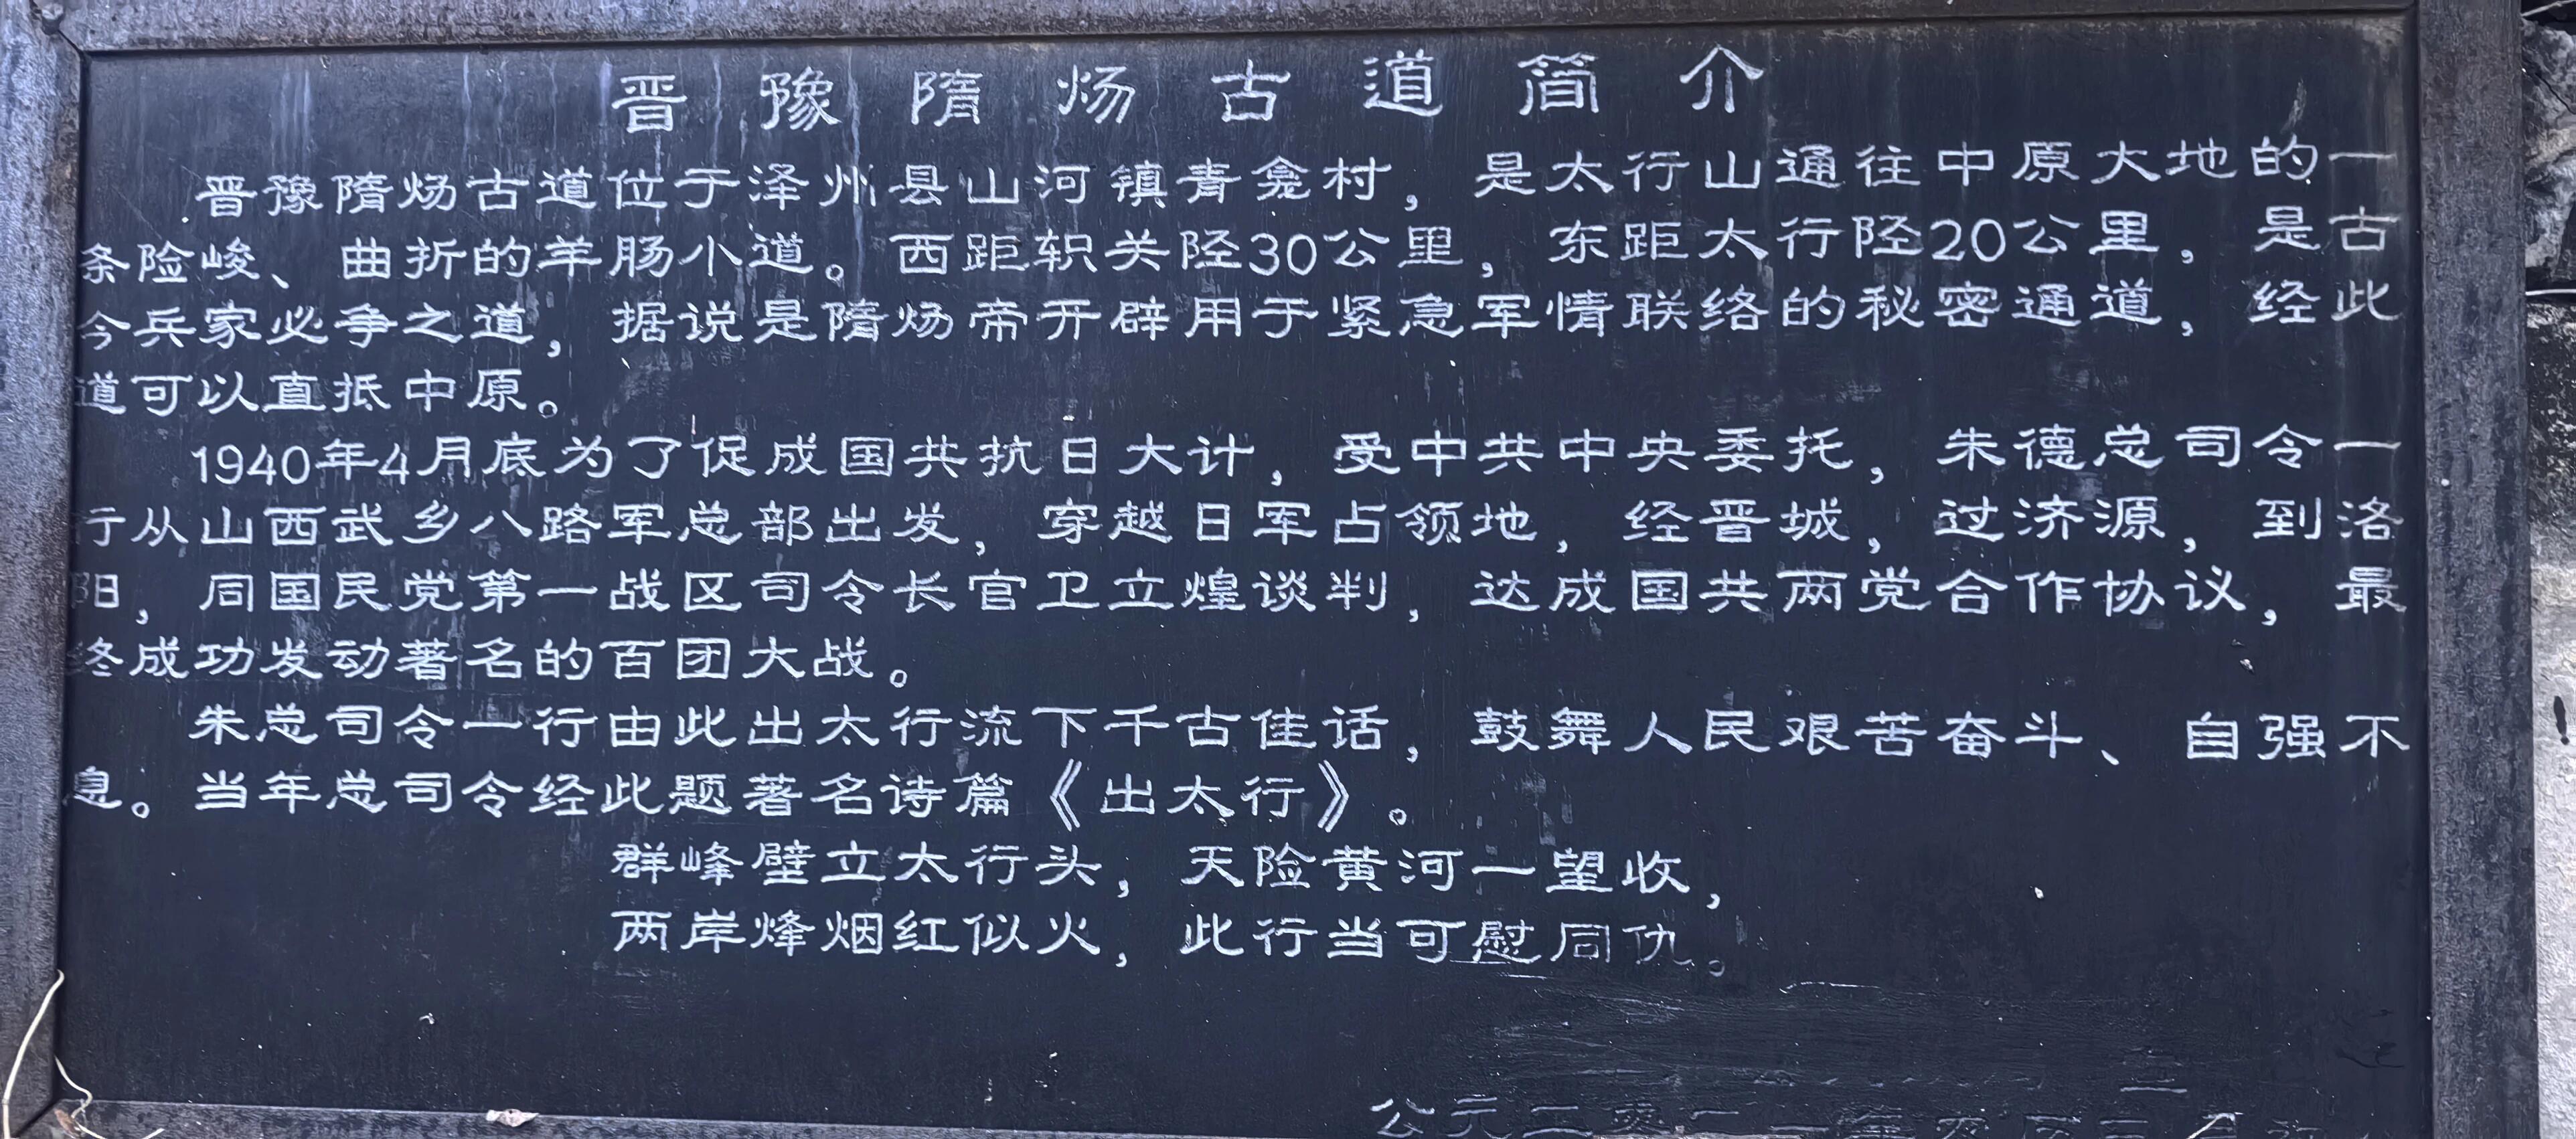 晋豫隋炀古道简介
晋豫隋炀古道位于泽州县山河镇青龛村，是太行山通往中原大地的一
条险峻、曲折的羊肠小道。西距轵关陉30公里，东距太行陉20公里，是古
今兵家必争之道，据说是隋炀帝开辟用于紧急军情联络的秘密通道，经此
道可以直抵中原。
1940年4月底为了促成国共抗日大计，受中共中央委托，朱德总司令一
行从山西武乡八路军总部出发，穿越日军占领地，经晋城，过济源，到洛
阳，同国民党第一战区司令长官卫立煌谈判，达成国共两党合作协议，最
终成功发动著名的百团大战。
朱总司令一行由此出太行流下千古佳话，鼓舞人民艰苦奋斗、自强不
息。当年总司令经此题著名诗篇《出太行》。
群峰壁立太行头，天险黄河一望收，
两岸烽烟红似火，此行当可慰同仇。
公元二零一